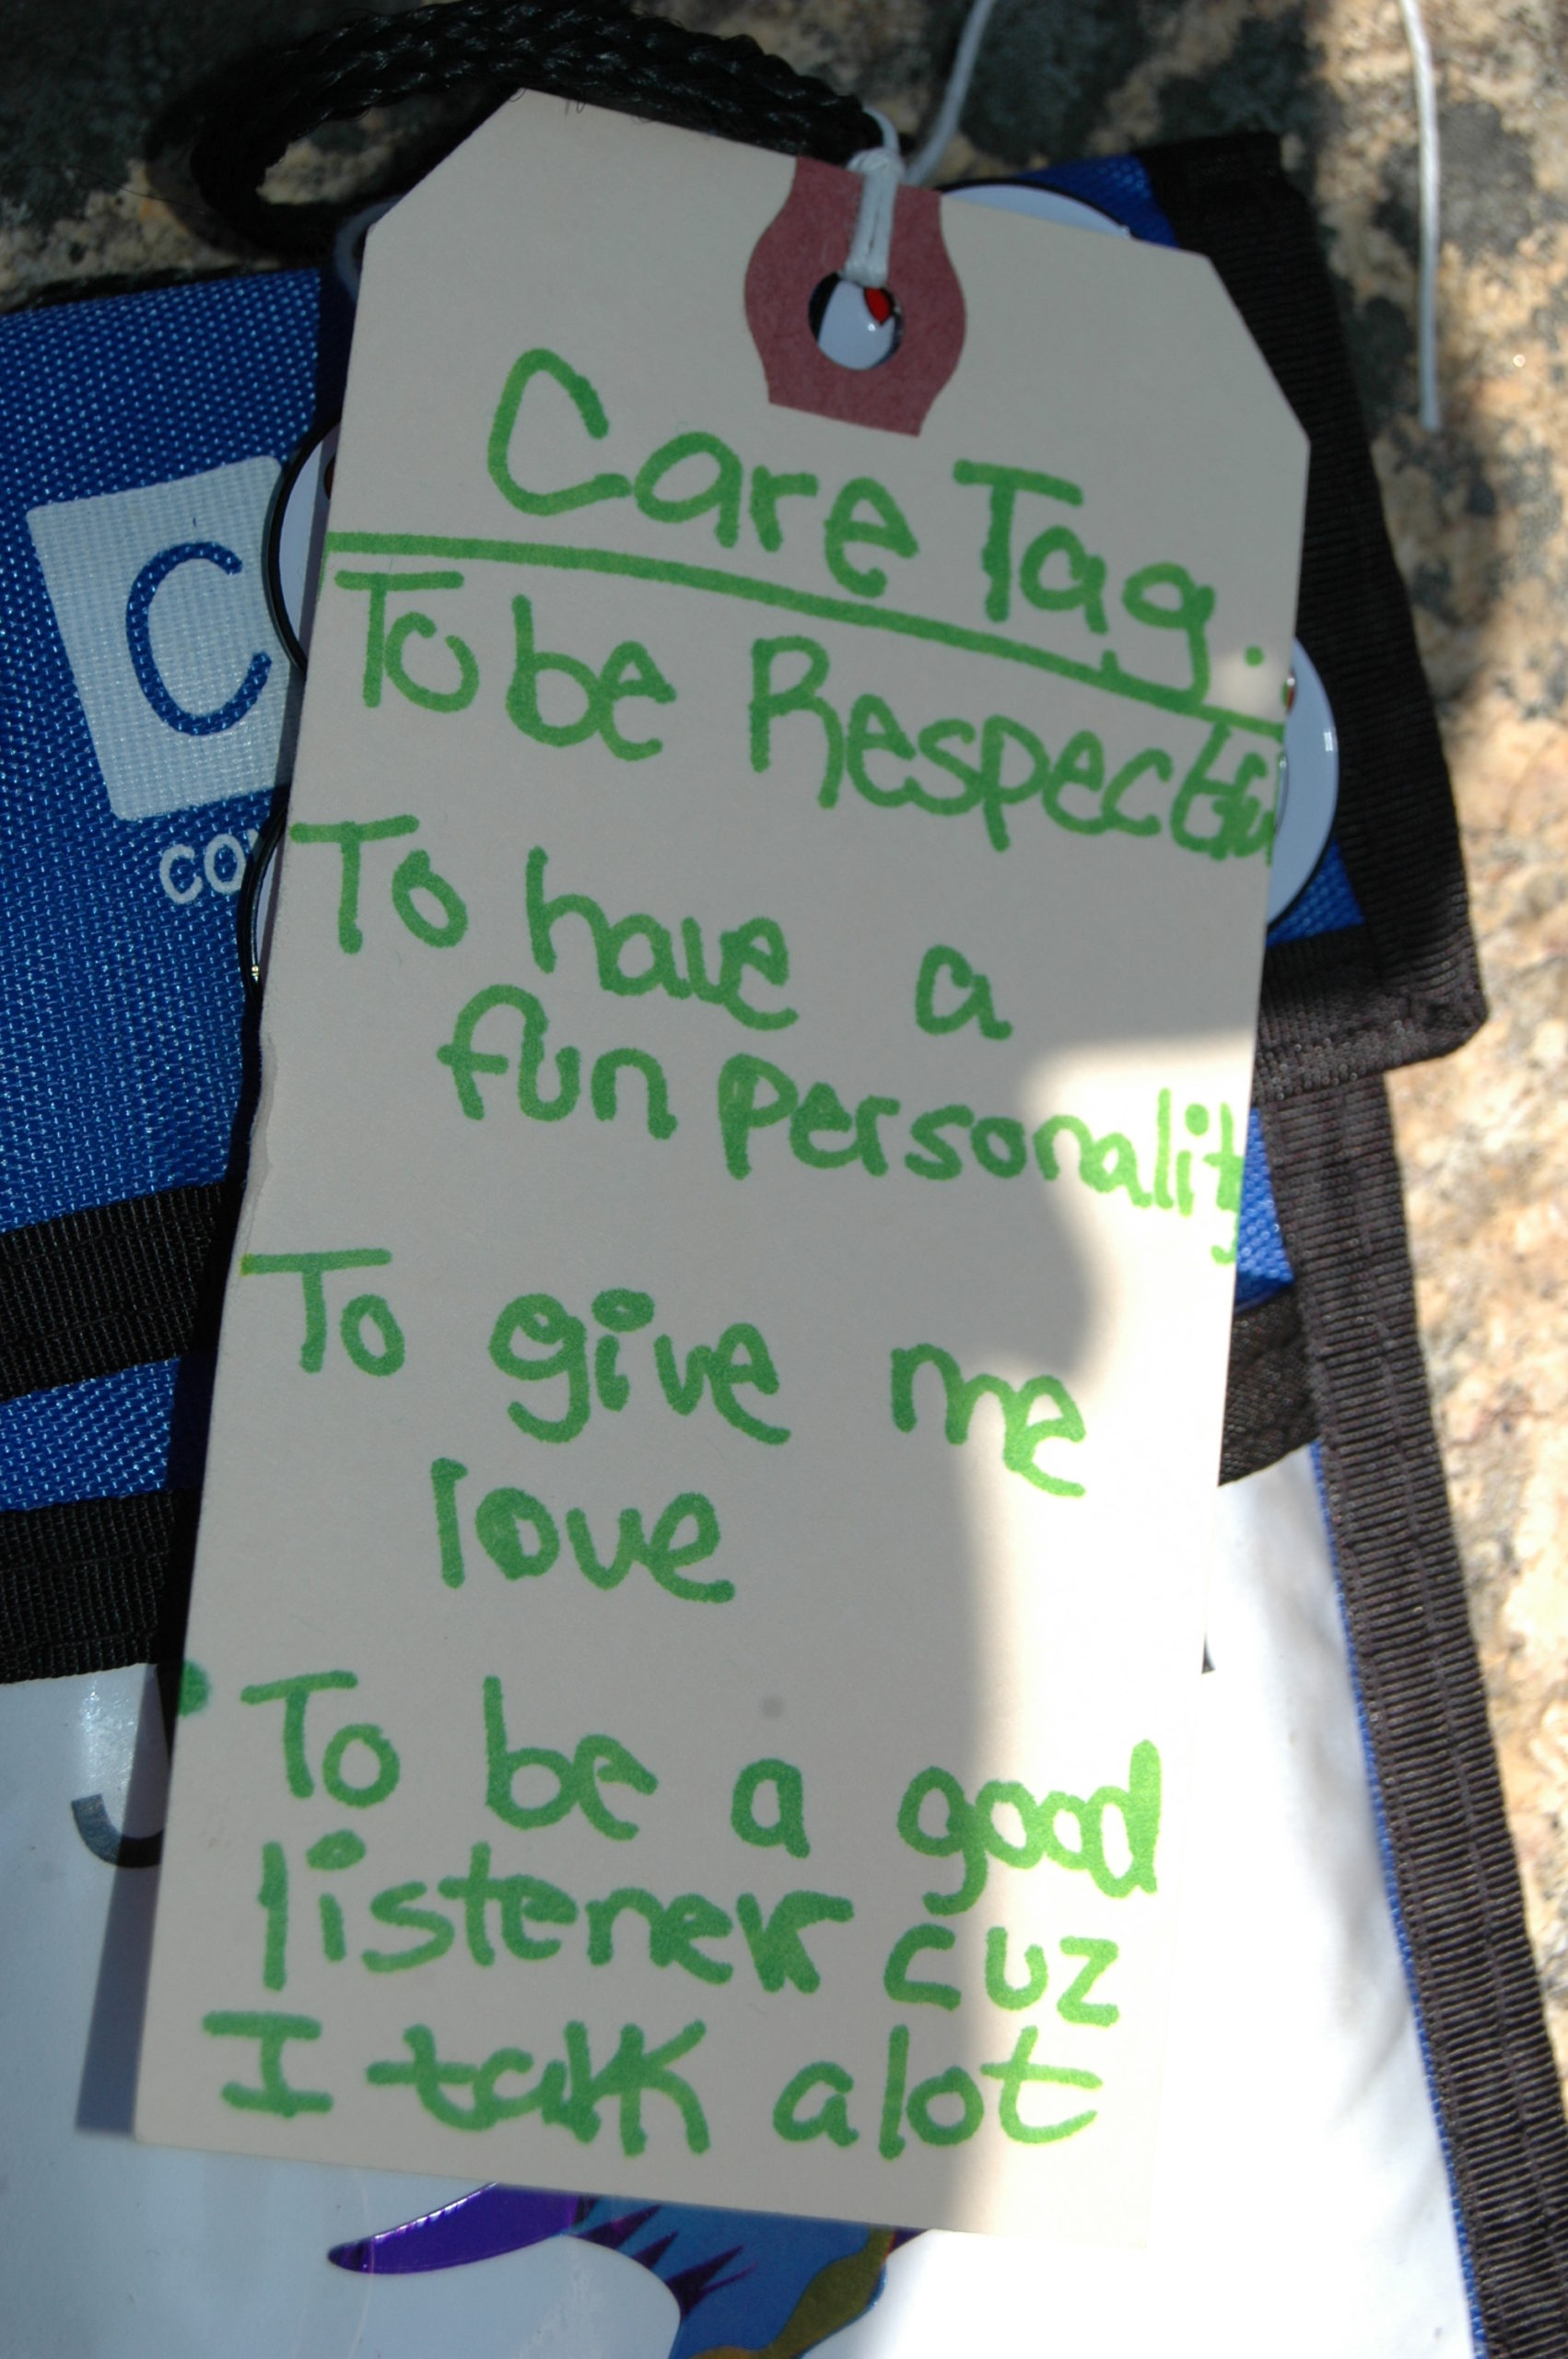 Care Tag.
To be Respectful
To have a
fun personality
To give me
love
To be a good
listener cuz
I talk alot
C